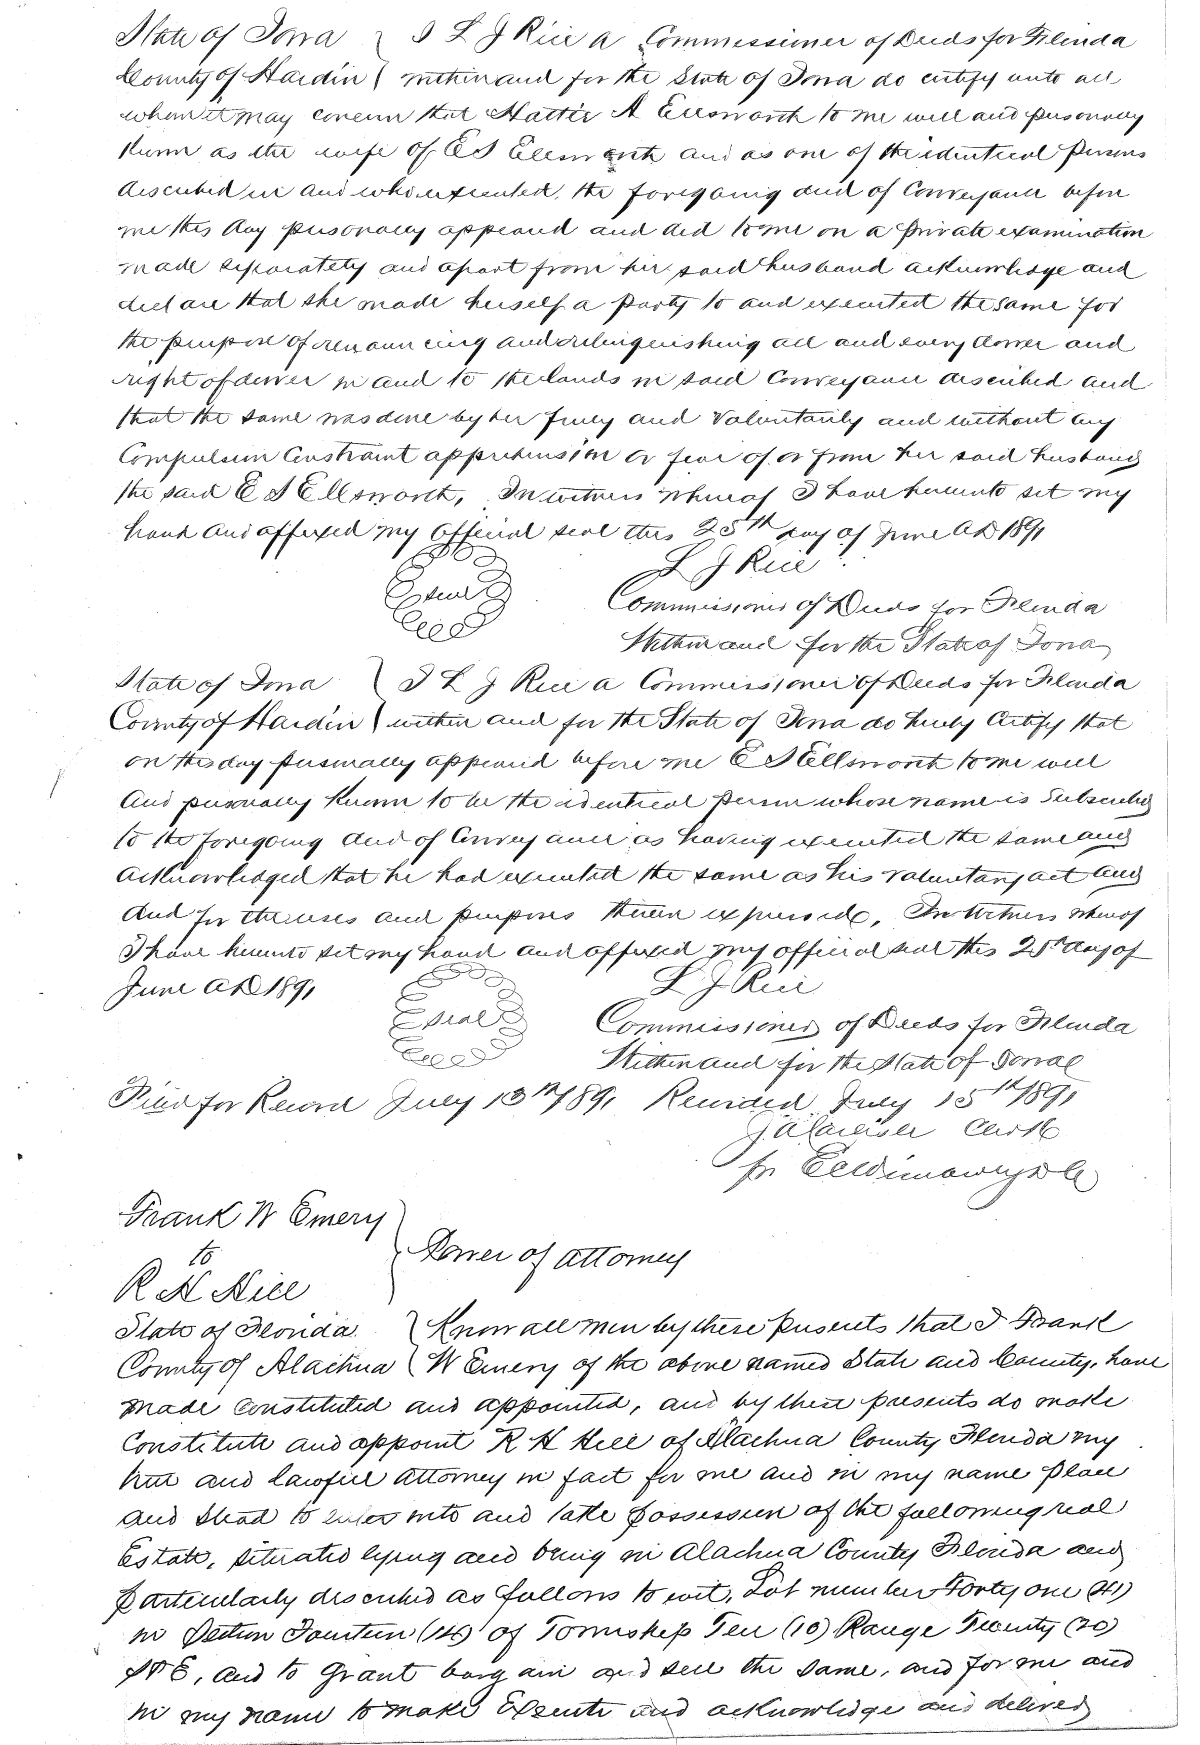 State of Iowa } I L J Rice a Commissioner of Deeds for Florida
County of Hardin } within and for the State of Iowa do certify unto all
whom it may concern that Hattie A Ellsworth to me well and personally
Known as the wife of E S Ellsworth and as one of the identical Persons
described in and who executed, the foregoing deed of Conveyance before
me this day personally appeared and did to me on a Private examination
made separately and apart from her said husband acknowledge and
declare that she made herself a party to and executed the same for
the purpose of renouncing and relinquishing all and every dower and
right of dower in and to the lands in said Conveyance described and
that the same was done by her freely and Voluntarily and without any
Compulsion Constraint apprehension or fear of or from her said husband
the said E S Ellsworth, In witness whereof I have hereunto set my
hand and affixed my Official seal this 25th day of June A D 1891
L J Rice
Seal
Commissioner of Deeds for Florida
Within and for the State of Iowa
State of Iowa } I L J Rice a Commissioner of Deeds for Florida
County of Hardin } within and for the State of Iowa do hereby Certify that
on this day personally appeared before me E S Ellsworth to me well
And personally Known to be the identical person whose name is Subscribed
to the foregoing deed of Conveyance as having executed the same and
acknowledged that he had executed the same as his voluntary act and
deed for the uses and purposes therein expressed, In Witness whereof
I have hereunto set my hand and affixed my official seal this 25th day of
June A D 1891
L J Rice
Seal
Commissioner of Deeds for Florida
Within and for the State of Iowa
Filed for Record July 13th 1891 Recorded July 15th 1891
Clerk
pr
Frank W Emery }
to } Power of attorney
R H Hill
State of Florida } Know all men by these presents that I Frank
County of Alachua } W Emery of the above named State and County, have
made constituted and appointed, and by these presents do make
Constitute and appoint R H Hill of Alachua County Florida my
true and lawful attorney in fact for me and in my name place
and stead to enter into and take possession of the following real
Estate, situated lying and being in Alachua County Florida and
particularly described as follows to wit, Lot number Forty one (41)
in Section Fourteen (14) of Township Ten (10) Range Twenty (20)
S & E, and to grant bargain and sell the same, and for me and
in my name to make Execute and acknowledge and deliver